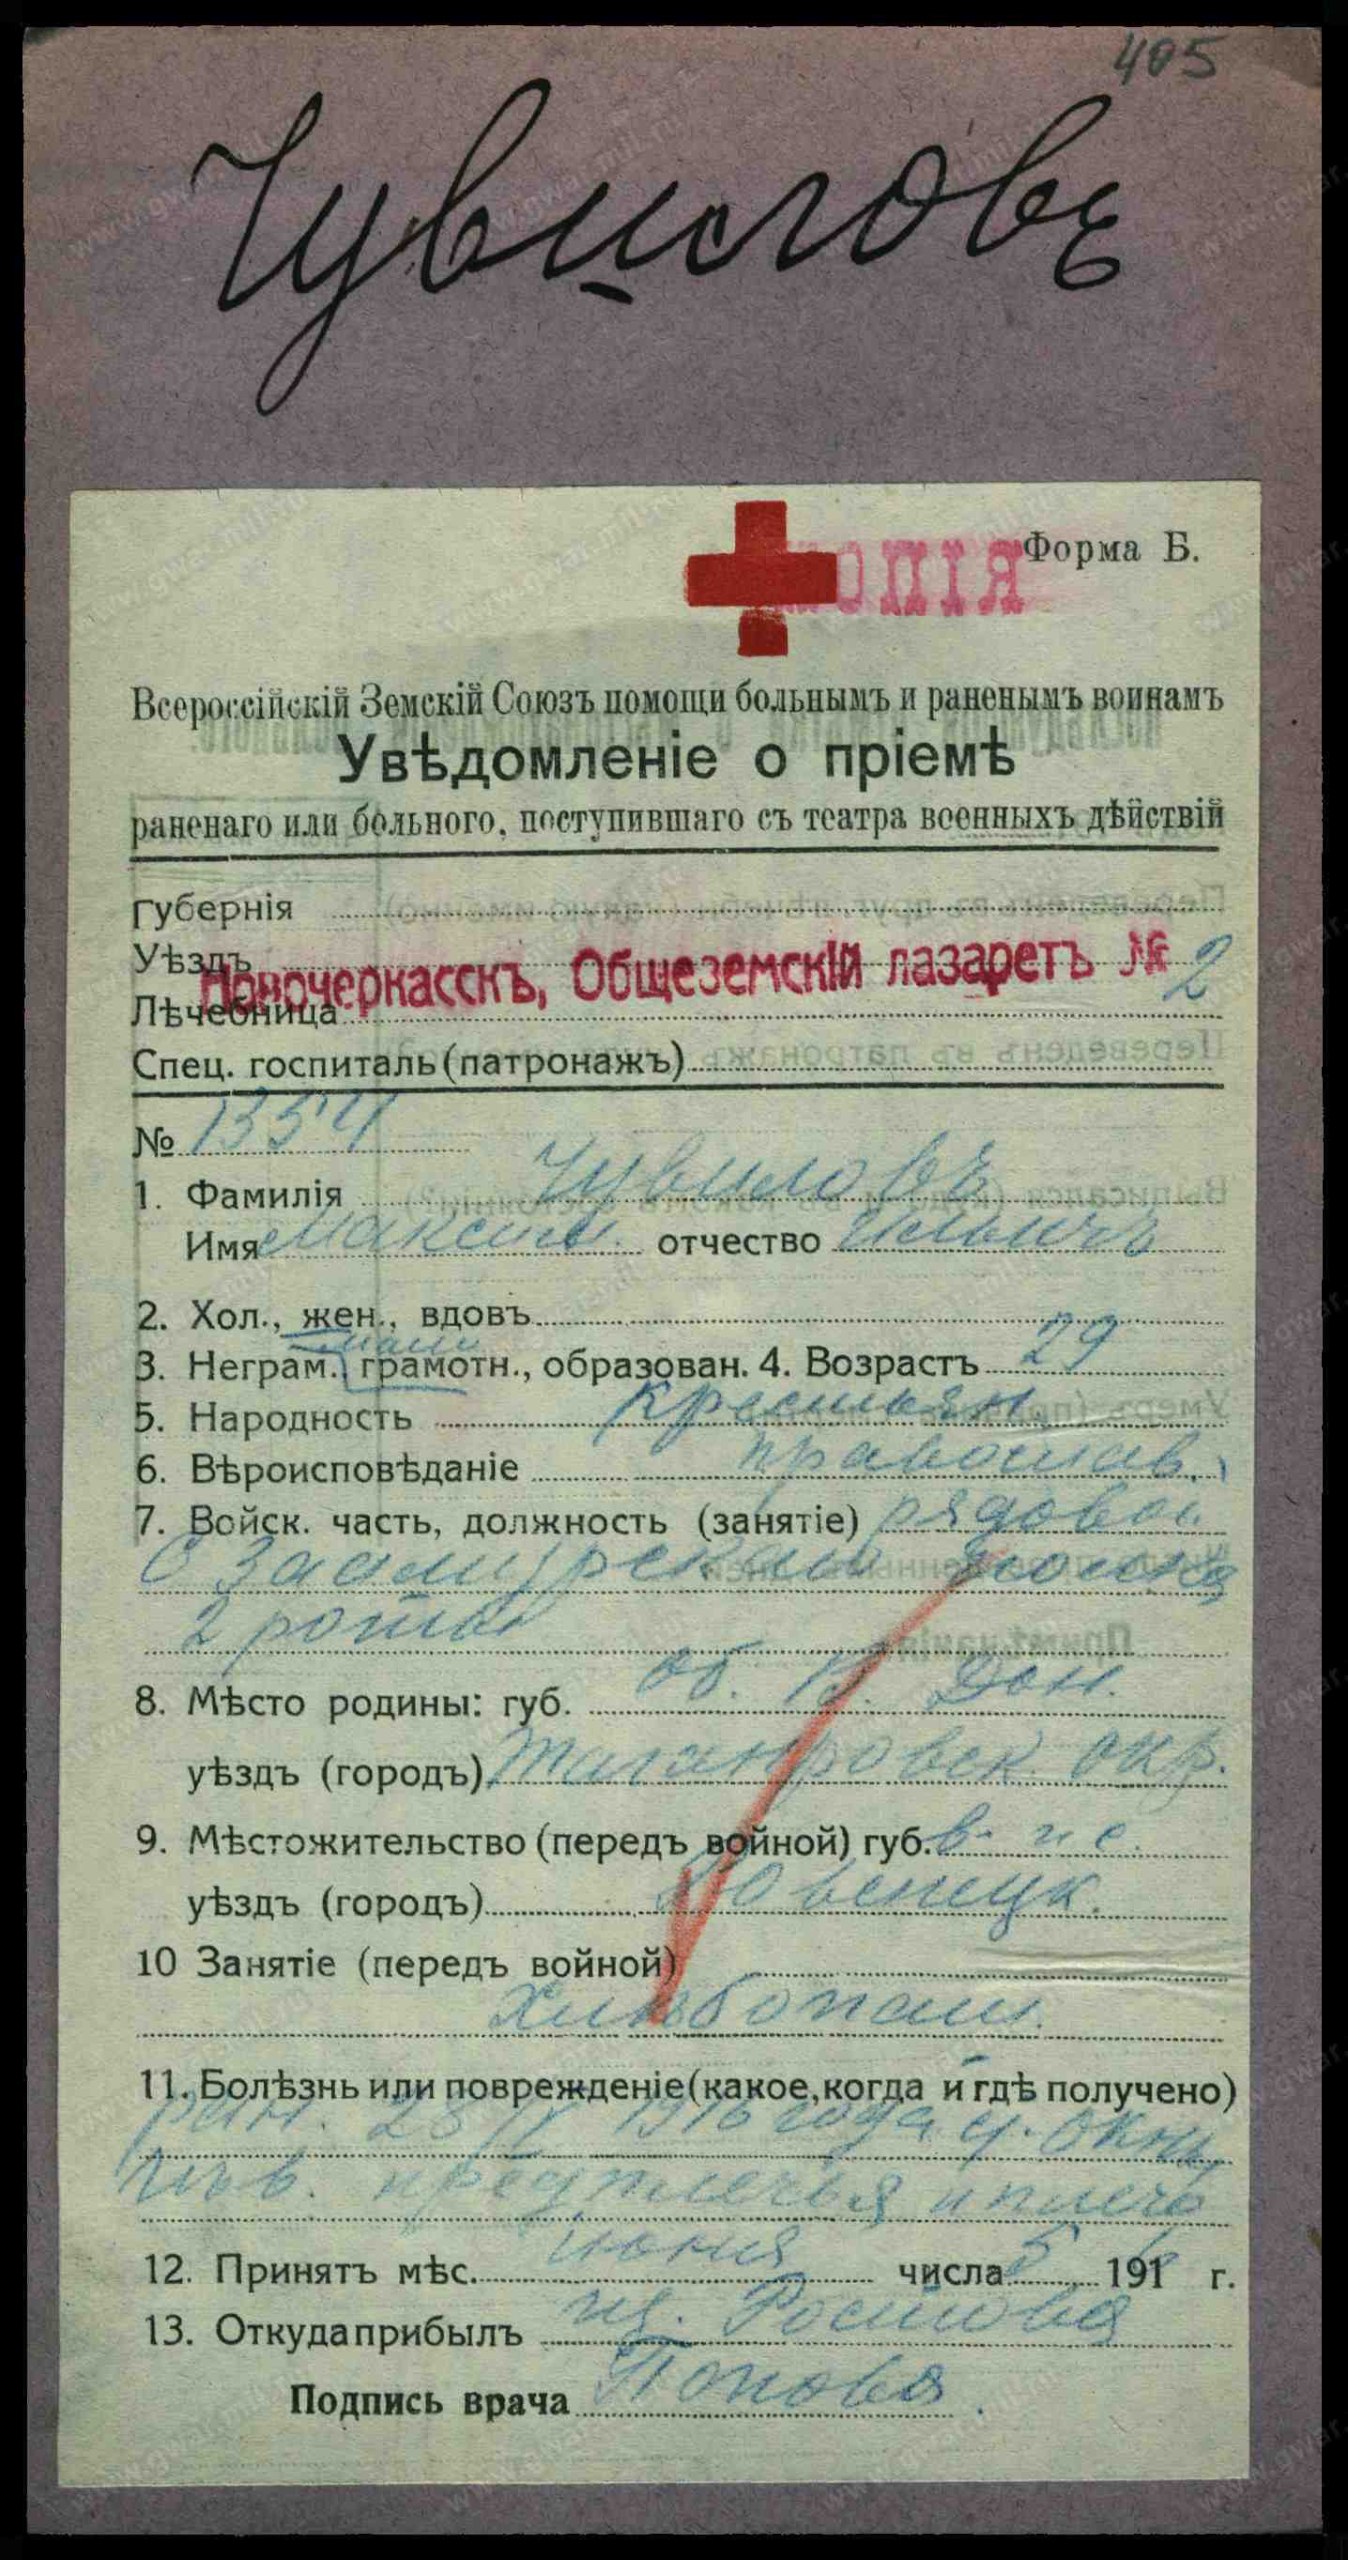 405
Чувиловъ
КОПІЯ
Форма Б.
Всероссійскій Земскій Союзъ помощи больнымъ и раненымъ воинамъ
Увѣдомленіе о пріемѣ
раненаго или больного, поступившаго съ театра военныхъ дѣйствій
Губернія
Уѣздъ
Новочеркасскъ, Общеземскій лазаретъ № 2
Лѣчебница
Спец. госпиталь (патронажъ)
№ 1354
1. Фамилія Чувиловъ
Имя Максим. отчество Ильичъ
2. Хол., жен., вдовъ
мало
3. Неграм., грамотн., образован. 4. Возрастъ 29
5. Народность крестьян.
6. Вѣроисповѣданіе православ.
7. Войск. часть, должность (занятіе) рядовой
6 Заамурскаго полка
2 роты
8. Мѣсто родины: губ. об. В. Дон.
уѣздъ (городъ) Таганровск. окр.
9. Мѣстожительство (передъ войной) губ.
уѣздъ (городъ)
10 Занятіе (передъ войной)
Хлѣбопаш.
11. Болѣзнь или поврежденіе (какое, когда и гдѣ получено)
ран. 28 1916 года
лѣв. предплечья и плеча
12. Принятъ мѣс. июня числа 5 1916 г.
13. Откуда прибылъ из. Ростова
Подпись врача Попова